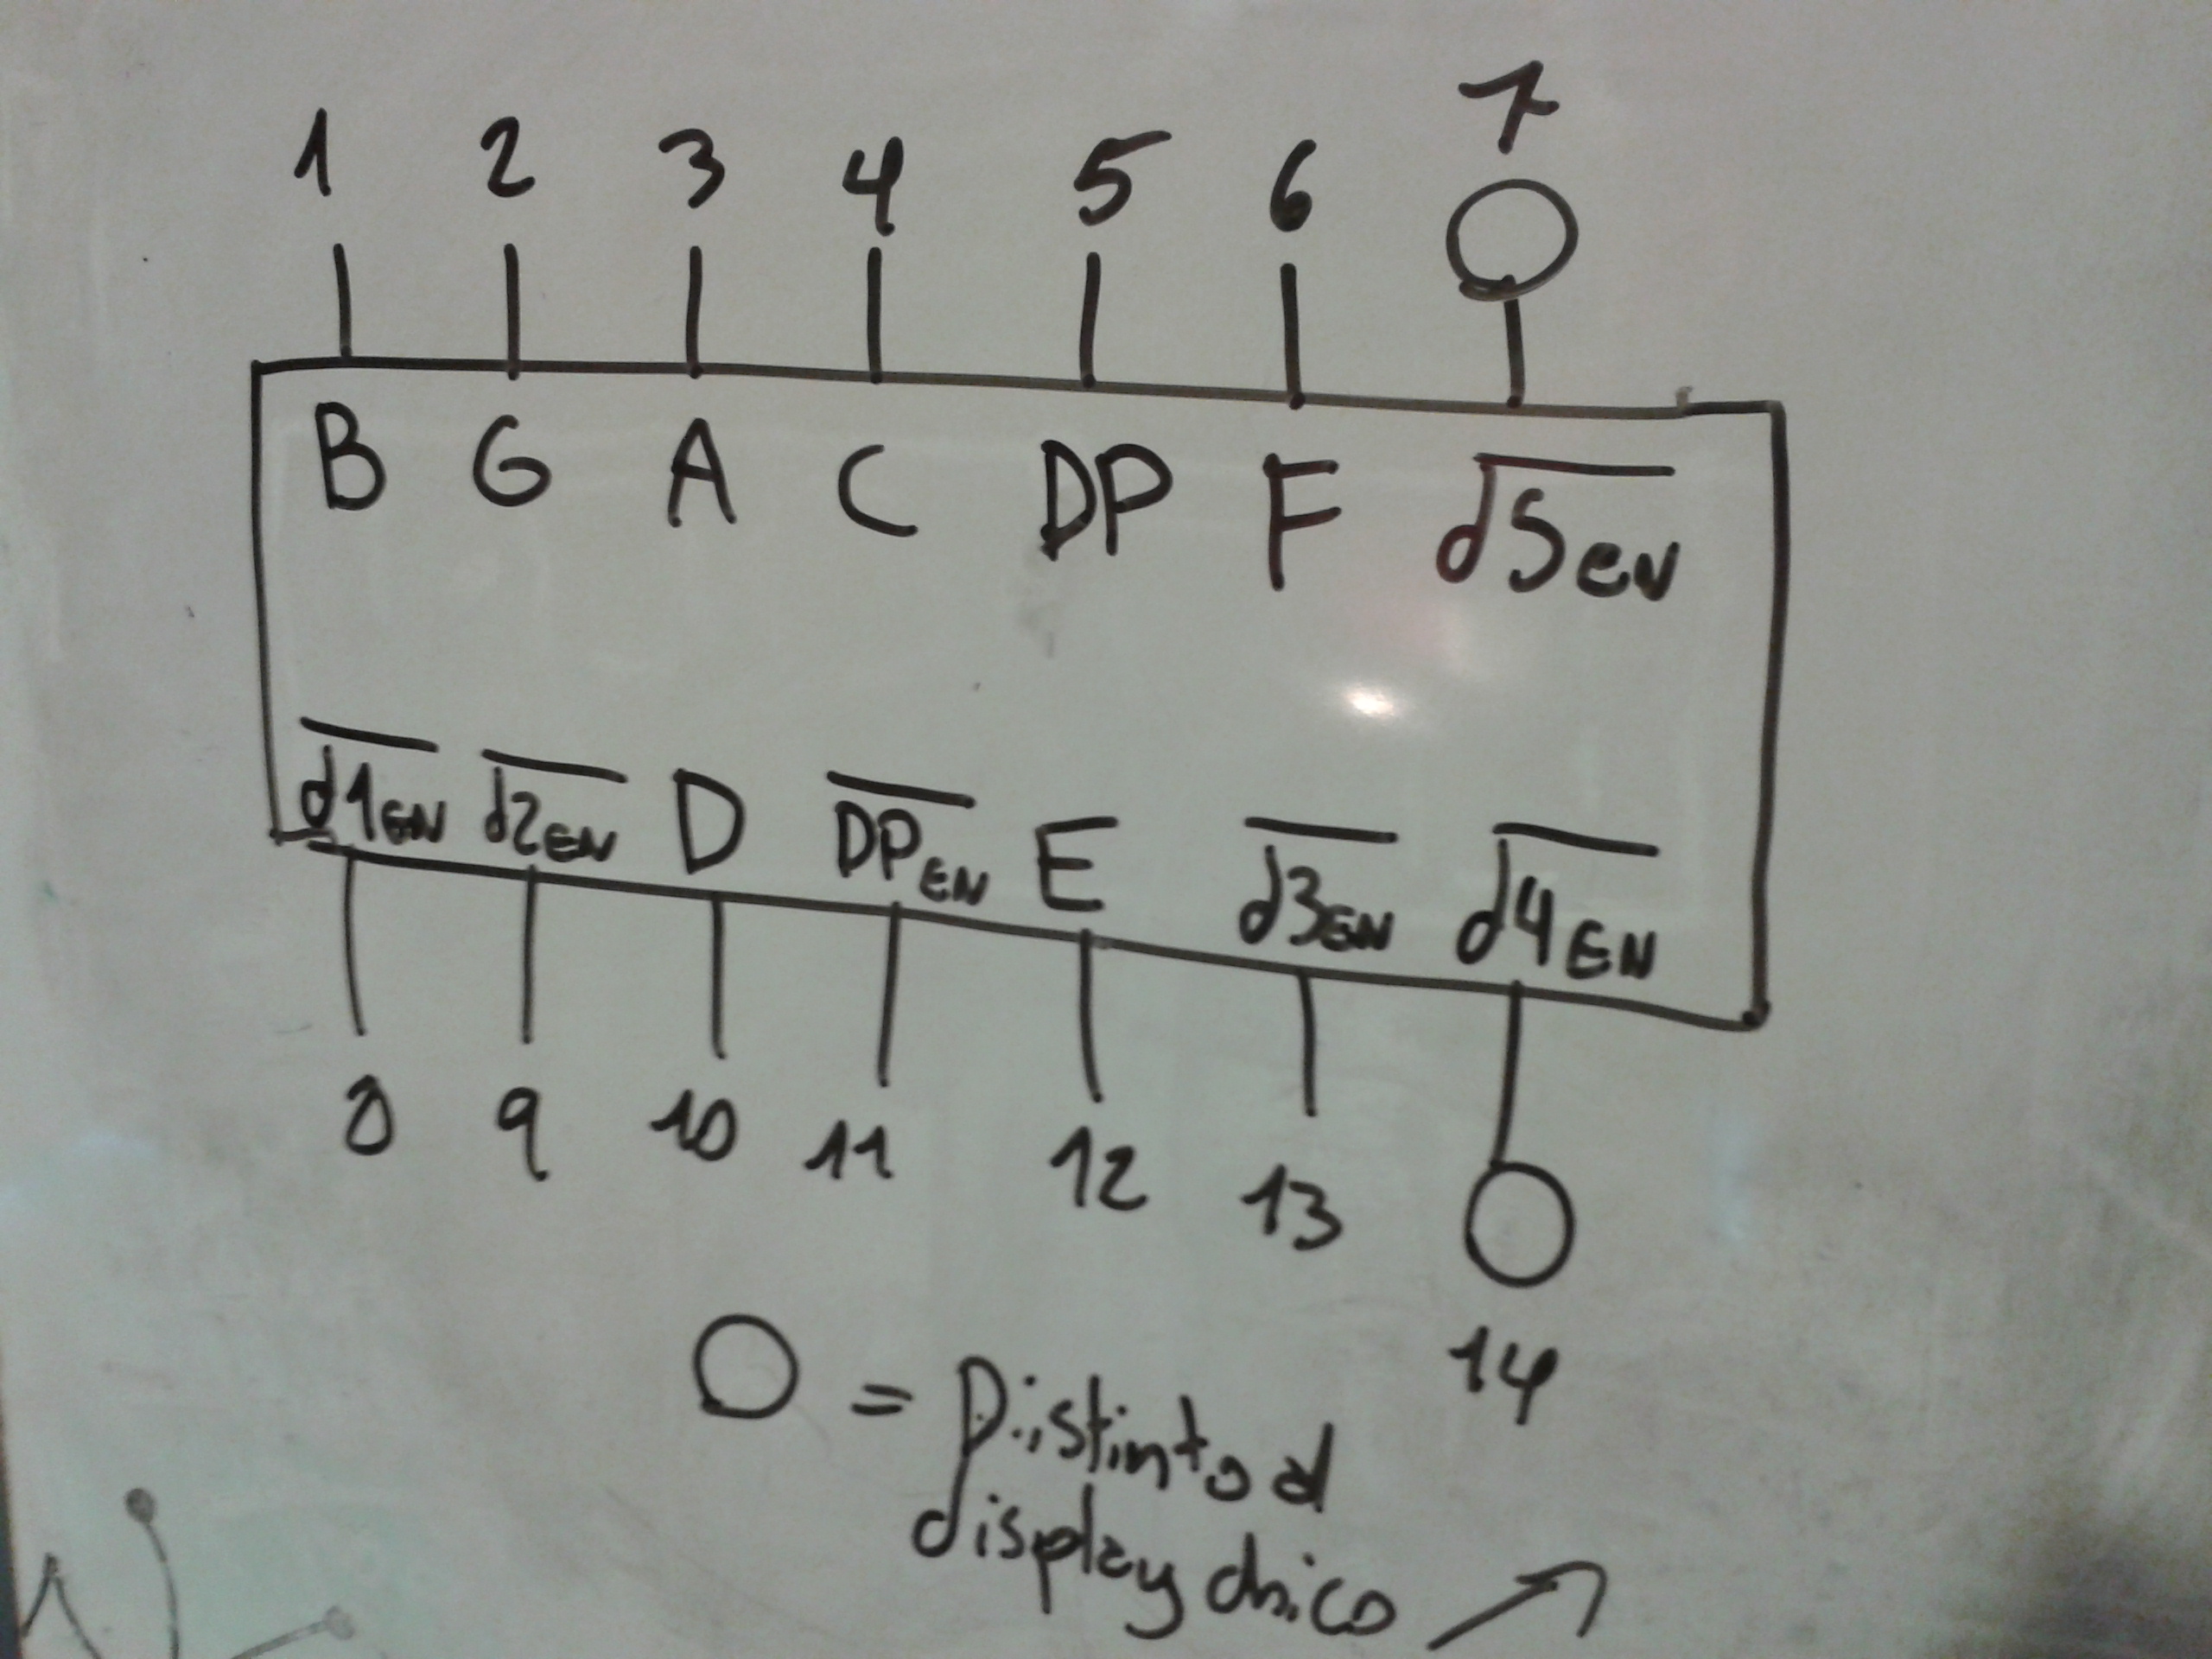 1 2 3 4 5 6 7
B G A C DP F d5EN
d1EN d2EN D DPEN E d3EN d4EN
8 9 10 11 12 13
14
O = Distinto al
display chico